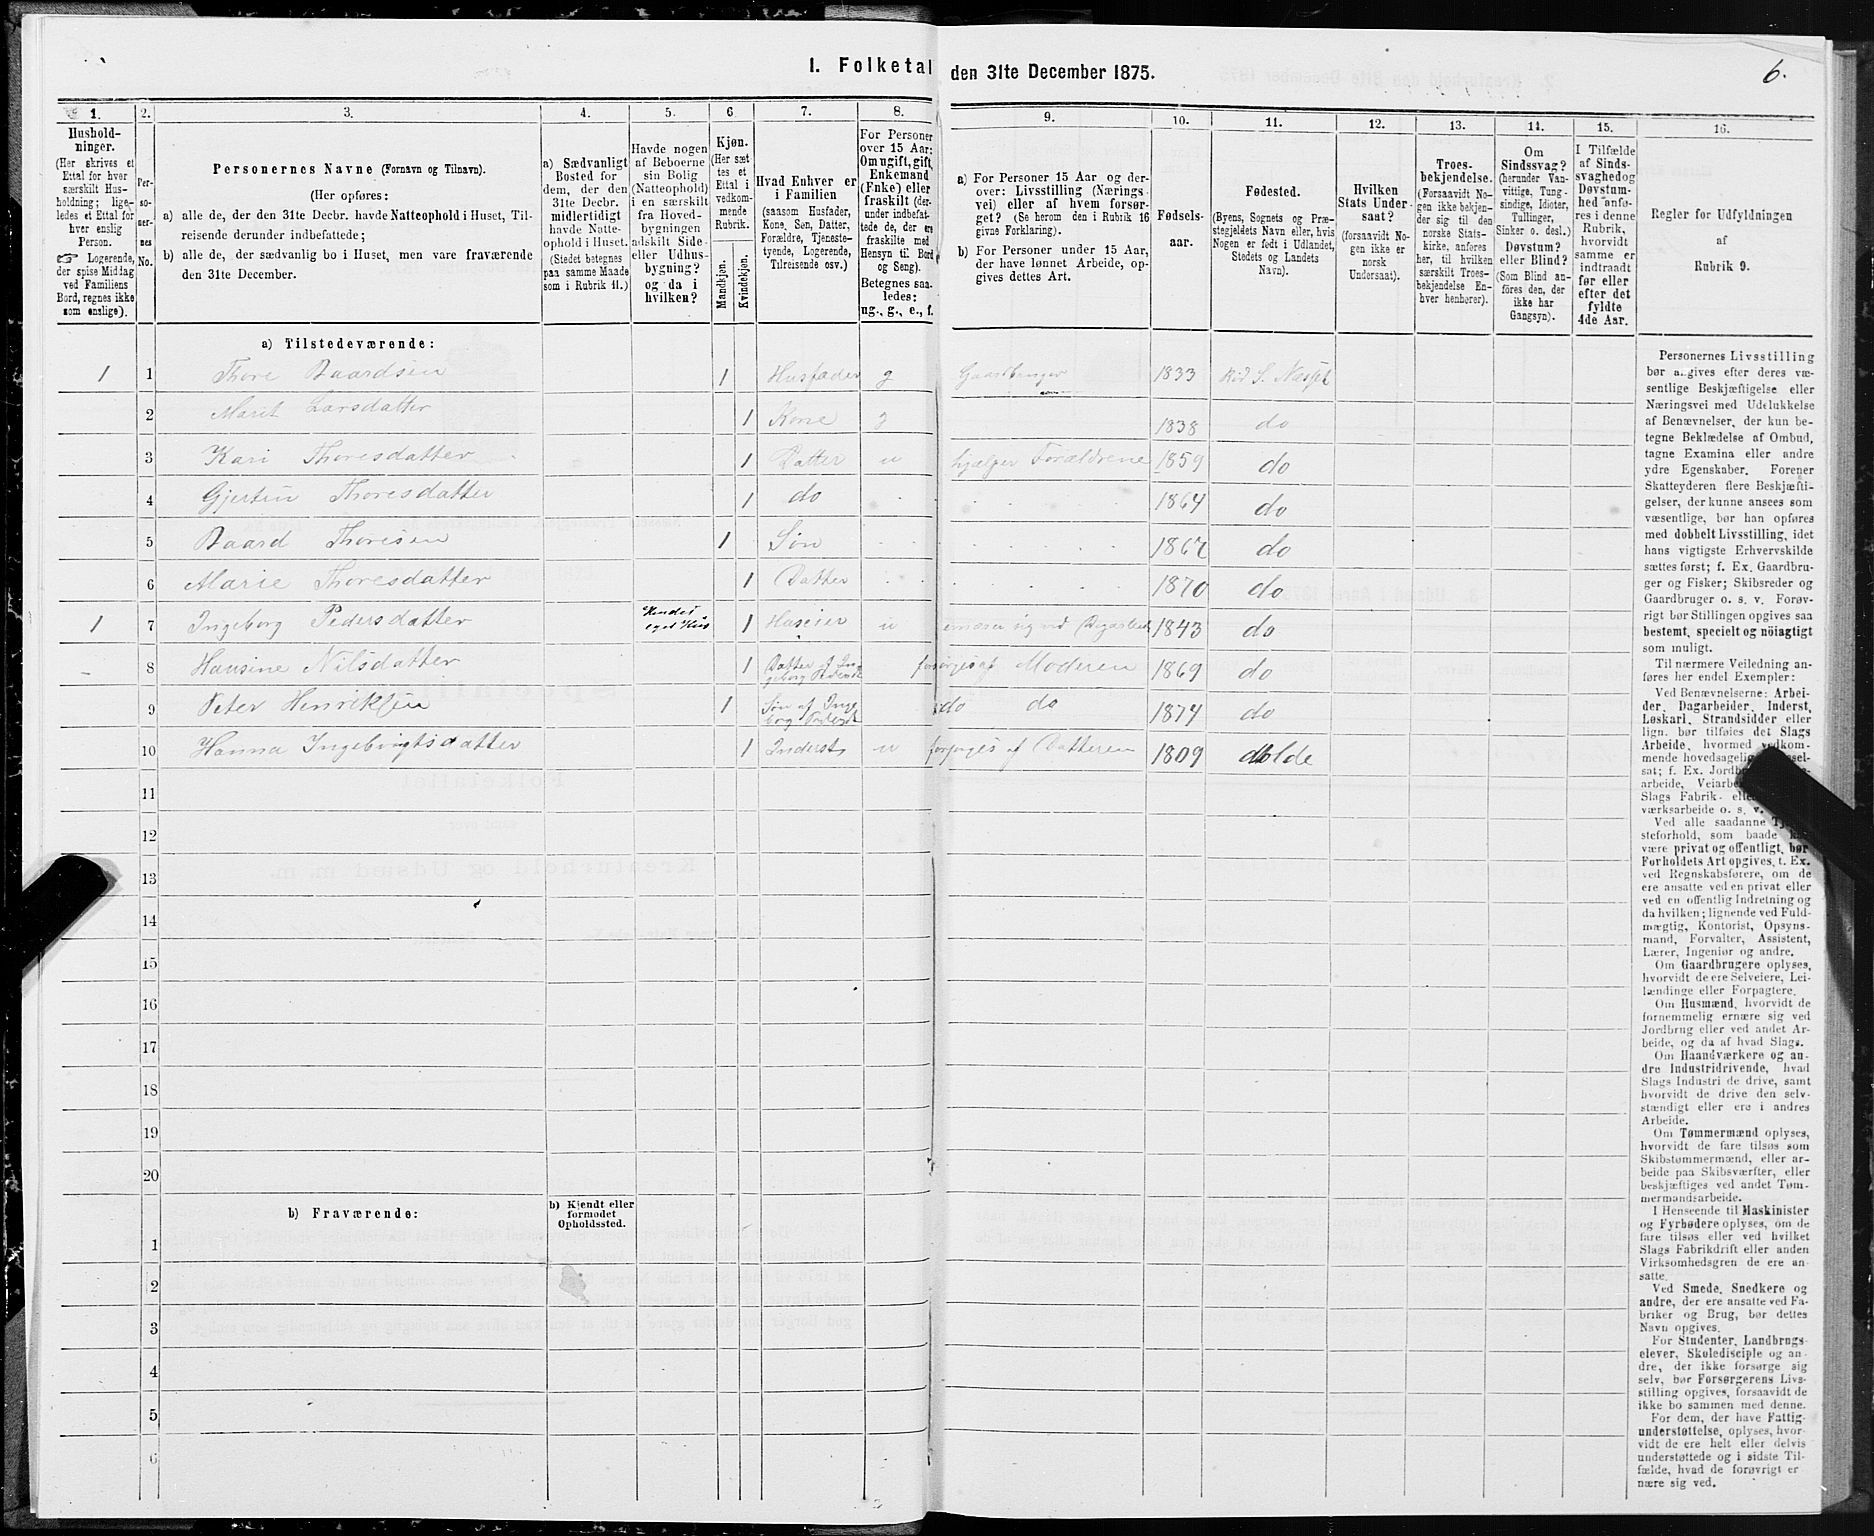 I. Folketal den 31te December 1875.
6.
1.
Hushold-
ninger.
(Her skrives et
Ettal for hver
særskilt Hus-
holdning; lige-
ledes et Ettal for
hver enslig
Person.
Logerende,
der spise Middag
ved Familiens
Bord, regnes ikke
som enslige).
2.
Per-
so-
ner-
nes
No.
3.
Personernes Navne (Fornavn og Tilnavn).
(Her opføres:
a) alle de, der den 31te Decbr. havde Natteophold i Huset, Til-
reisende derunder indbefattede;
b) alle de, der sædvanlig bo i Huset, men vare fraværende
den 31te December.
4.
a) Sædvanligt
Bosted for
dem, der den
31te Decbr.
midlertidigt
havde Natte-
ophold i Huset.
(Stedet betegnes
paa samme Maade
som i Rubrik 11.)
5.
Havde nogen
af Beboerne
sin Bolig
(Natteophold)
i en særskilt
fra Hoved-
bygningen
adskilt Side-
eller Udhus-
bygning?
og da i
hvilken?
6
Kjøn.
(Her sæt
tes et
Ettal i
vedkom-
mende
Rubrik.
Mandkjøn.
Kvindekjøn.
7.
Hvad Enhver er
i Familien
(saasom Husfader,
Kone, Søn, Datter,
Forældre, Tjeneste-
tyende, Logerende,
Tilreisende osv.)
8.
For Personer
over 15 Aar:
Om ugift, gift,
Enkemand
(Enke) eller
fraskilt (der-
under indbefat-
tede de, der ere
fraskilte med
Hensyn til Bord
og Seng).
Betegnes saa-
ledes:
ug., g., e., f.
9.
a) For Personer 15 Aar og der-
over: Livsstilling (Nærings-
vei) eller af hvem forsør-
get? (Se herom den i Rubrik 16
givne Forklaring).
b) For Personer under 15 Aar,
der have lønnet Arbeide, op-
gives dettes Art.
10.
Fødsels-
aar.
11.
Fødested.
(Byens, Sognets og Præ-
stegjeldets Navn eller, hvis
Nogen er født i Udlandet,
Stedets og Landets
Navn).
12.
Hvilken
Stats Under-
saat?
(forsaavidt No-
gen ikke er
norsk
Undersaat).
13.
Troes-
bekjendelse.
(Forsaavidt No-
gen ikke bekjen-
der sig til den
norske Stats-
kirke, anføres
her, til hvilken
særskilt Troes-
bekjendelse En-
hver henhører).
14.
Om
Sindssvag?
(herunder Van-
vittige, Tung-
sindige, Idioter,
Tullinger,
Sinker o. desl.)
Døvstum?
eller Blind?
(Som Blind an-
føres den, der
ikke har
Gangsyn).
15.
I Tilfælde
af Sinds-
svaghed og
Døvstum-
hed anfø-
res i denne
Rubrik,
hvorvidt
samme er
indtraadt
før eller
efter det
fyldte
4de Aar.
16.
Regler for Udfyldningen
af
Rubrik 9.
a) Tilstedeværende:
1 1 Thore Baardsen 1 Husfader g Gaardbruger 1833 S. Næsset
2 Marit Larsdatter 1 Kone g 1838 do
3 Kari Thoresdatter 1 Datter u hjælper Forældrene 1859 do
4 Gjertin Thoresdatter 1 do 1864 do
5 Baard Thoresen 1 Søn 1867 do
6 Marie Thoresdatter 1 Datter 1870 do
1 7 Ingeborg Pedersdatter eget Hus 1 Huseier u ernærer sig ved 1843 do
8 Hansine Nilsdatter 1 Datter af Ingeborg Pedersdt forsørges af Moderen 1869 do
9 Peter Henriksen 1 Søn af Ingeborg Pedersdt do do 1874 do
10 Hanna Ingebrigtsdatter 1 Inderst u forsørges af Datteren 1809 Molde
11
12
13
14
15
16
17
18
19
20
b) Fraværende:
b) Kjendt eller
formodet
Opholdssted.
1
2
3
4
5
6
Personernes Livsstilling
bør angives efter deres væ-
sentlige Beskjæftigelse eller
Næringsvei med Udelukkelse
af Benævnelser, der kun be-
tegne Beklædelse af Ombud,
tagne Examina eller andre
ydre Egenskaber. Forener
Skatteyderen flere Beskjæfti-
gelser, der kunne ansees som
væsentlige, bør han opføres
med dobbelt Livsstilling, idet
hans vigtigste Erhvervskilde
sættes først; f. Ex. Gaardbru-
ger og Fisker; Skibsreder og
Gaardbruger o. s. v. Forøv-
rigt bør Stillingen opgives saa
bestemt, specielt og nøiagtigt
som muligt.
Til nærmere Veiledning an-
føres her endel Exempler:
Ved Benævnelserne: Arbei-
der, Dagarbeider, Inderst,
Løskarl, Strandsidder eller
lign. bør tilføies det Slags
Arbeide, hvormed vedkom-
mende hovedsagelig
sat; f. Ex.
arbeide,
Slags Fabrik-
værksarbeide o. s. v.
Ved alle saadanne
steforhold, som baade
være privat og offentligt, bør
Forholdets Art opgives, t. Ex.
ved Regnskabsførere, om de
ere ansatte ved en privat eller
ved en offentlig Indretning og
da hvilken; lignende ved Fuld-
mægtig, Kontorist, Opsyns-
mand, Forvalter, Assistent,
Lærer, Ingeniør og andre.
Om Gaardbrugere oplyses,
hvorvidt de ere Selveiere, Lei-
lændinge eller Forpagtere.
Om Husmænd, hvorvidt de
fornemmelig ernære sig ved
Jordbrug eller ved andet Ar-
beide, og da af hvad Slags.
Om Haandværkere og an-
dre Industridrivende, hvad
Slags Industri de drive, samt
hvorvidt de drive den selv-
stændigt eller ere i andres
Arbeide.
Om Tømmermænd oplyses,
hvorvidt de fare tilsøs som
Skibstømmermænd, eller ar-
beide paa Skibsværfter, eller
beskjæftiges ved andet Tøm-
mermandsarbeide.
I Henseende til Maskinister
og Fyrbødere oplyses, om de
fare tilsøs eller ved hvilket
Slags Fabrikdrift eller anden
Virksomhedsgren de ere an-
satte.
Ved Smede, Snedkere og
andre, der ere ansatte ved Fa-
briker og Brug, bør dettes
Navn opgives.
For Studenter, Landbrugs-
elever, Skoledisciple og an-
dre, der ikke forsørge sig
selv, bør Forsørgerens Livs-
stilling opgives, forsaavidt de
ikke bo sammen med denne.
For dem, der have Fattig-
understøttelse, oplyses, hvor-
vidt de ere helt eller delvis
understøttede og i sidste Til-
fælde, hvad de forøvrigt er-
nære sig ved.